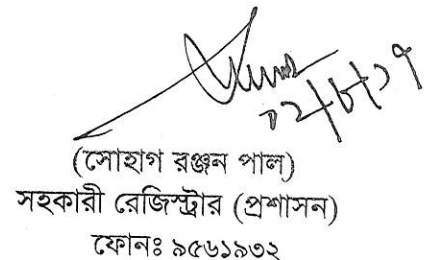 (সোহাগ রঞ্জন পাল)
সহকারী রেজিস্ট্রার (প্রশাসন)
ফোনঃ ৯৫৬১৯৩২